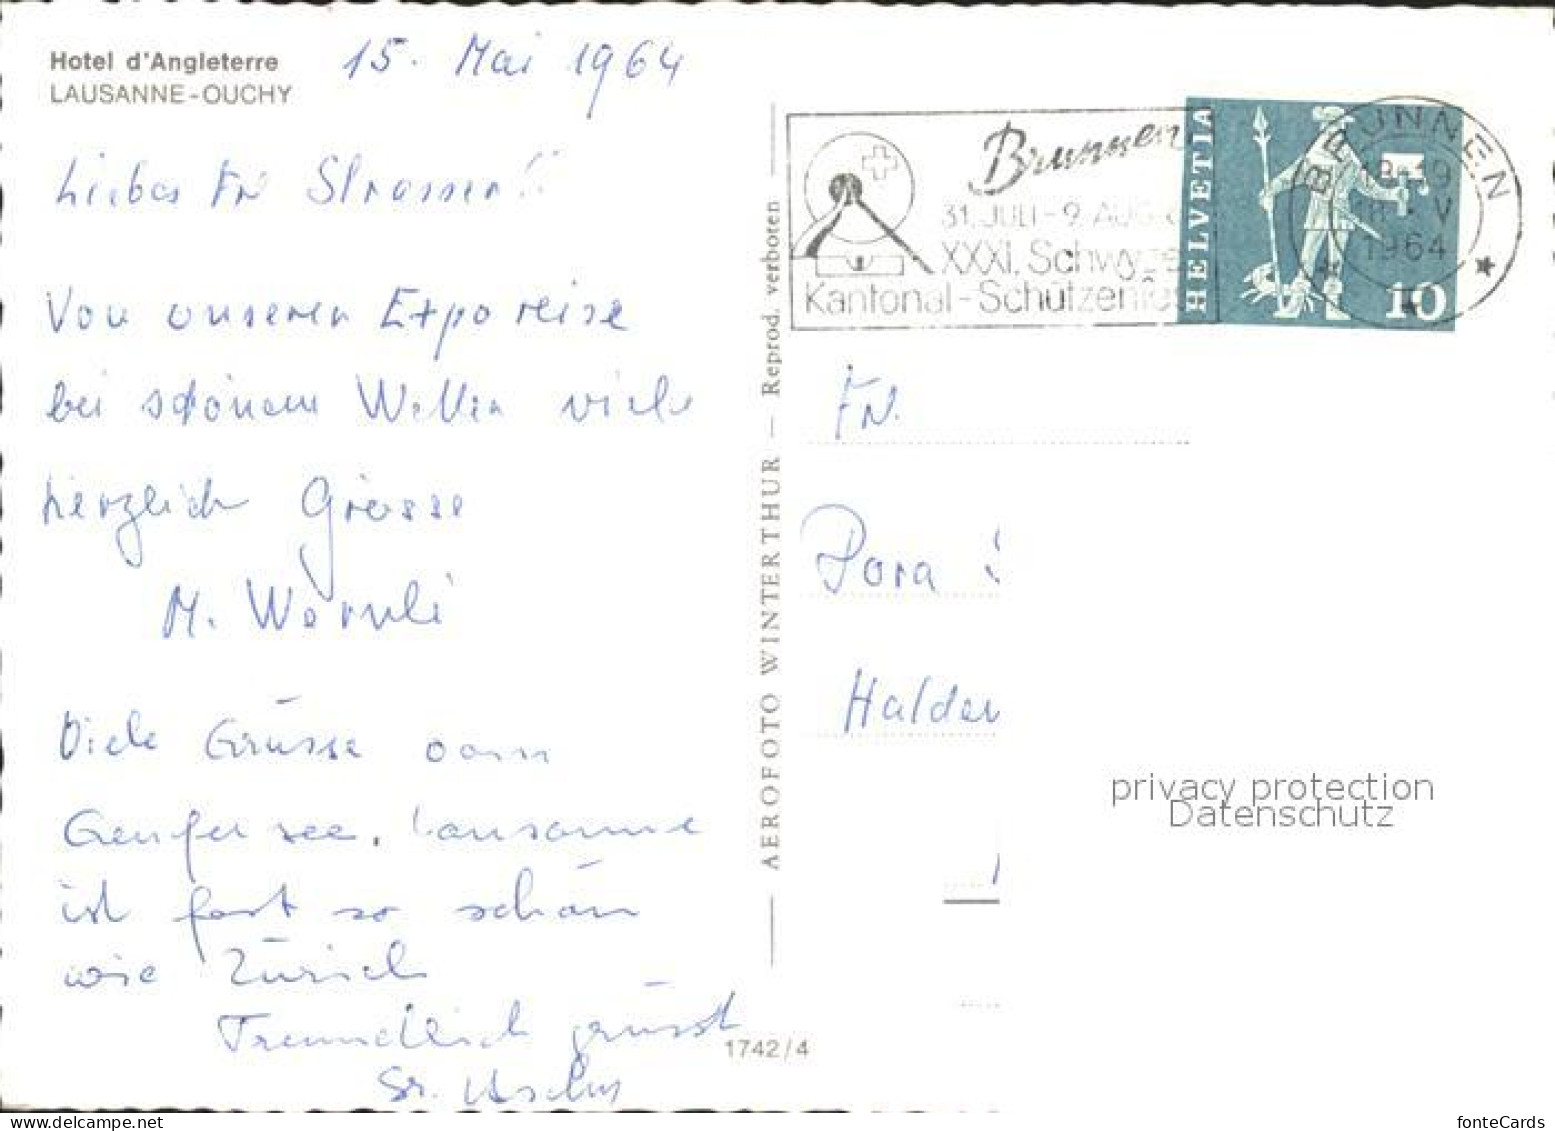 Hotel d'Angleterre
LAUSANNE-OUCHY
15. Mai 1964
Liebes Frl Strasser!
Von unseren Expo reise
bei schönem Wetter viele
herzlich Grüsse
M. Wernli
Viele Grüsse vom
Genfersee. Lausanne
ist fast so schön
wie Zürich
Freundlich grüsst
Sr.
1742/4
AEROFOTO WINTERTHUR — Reprod. verboten
Brunnen
31. JULI - 9. AUG.
XXXI. Schwyze
Kantonal-Schützenfes
HELVETIA
10
BRUNNEN
18-19
18. V
1964
Frl.
Dora S
Halden
privacy protection
Datenschutz
fonteCards